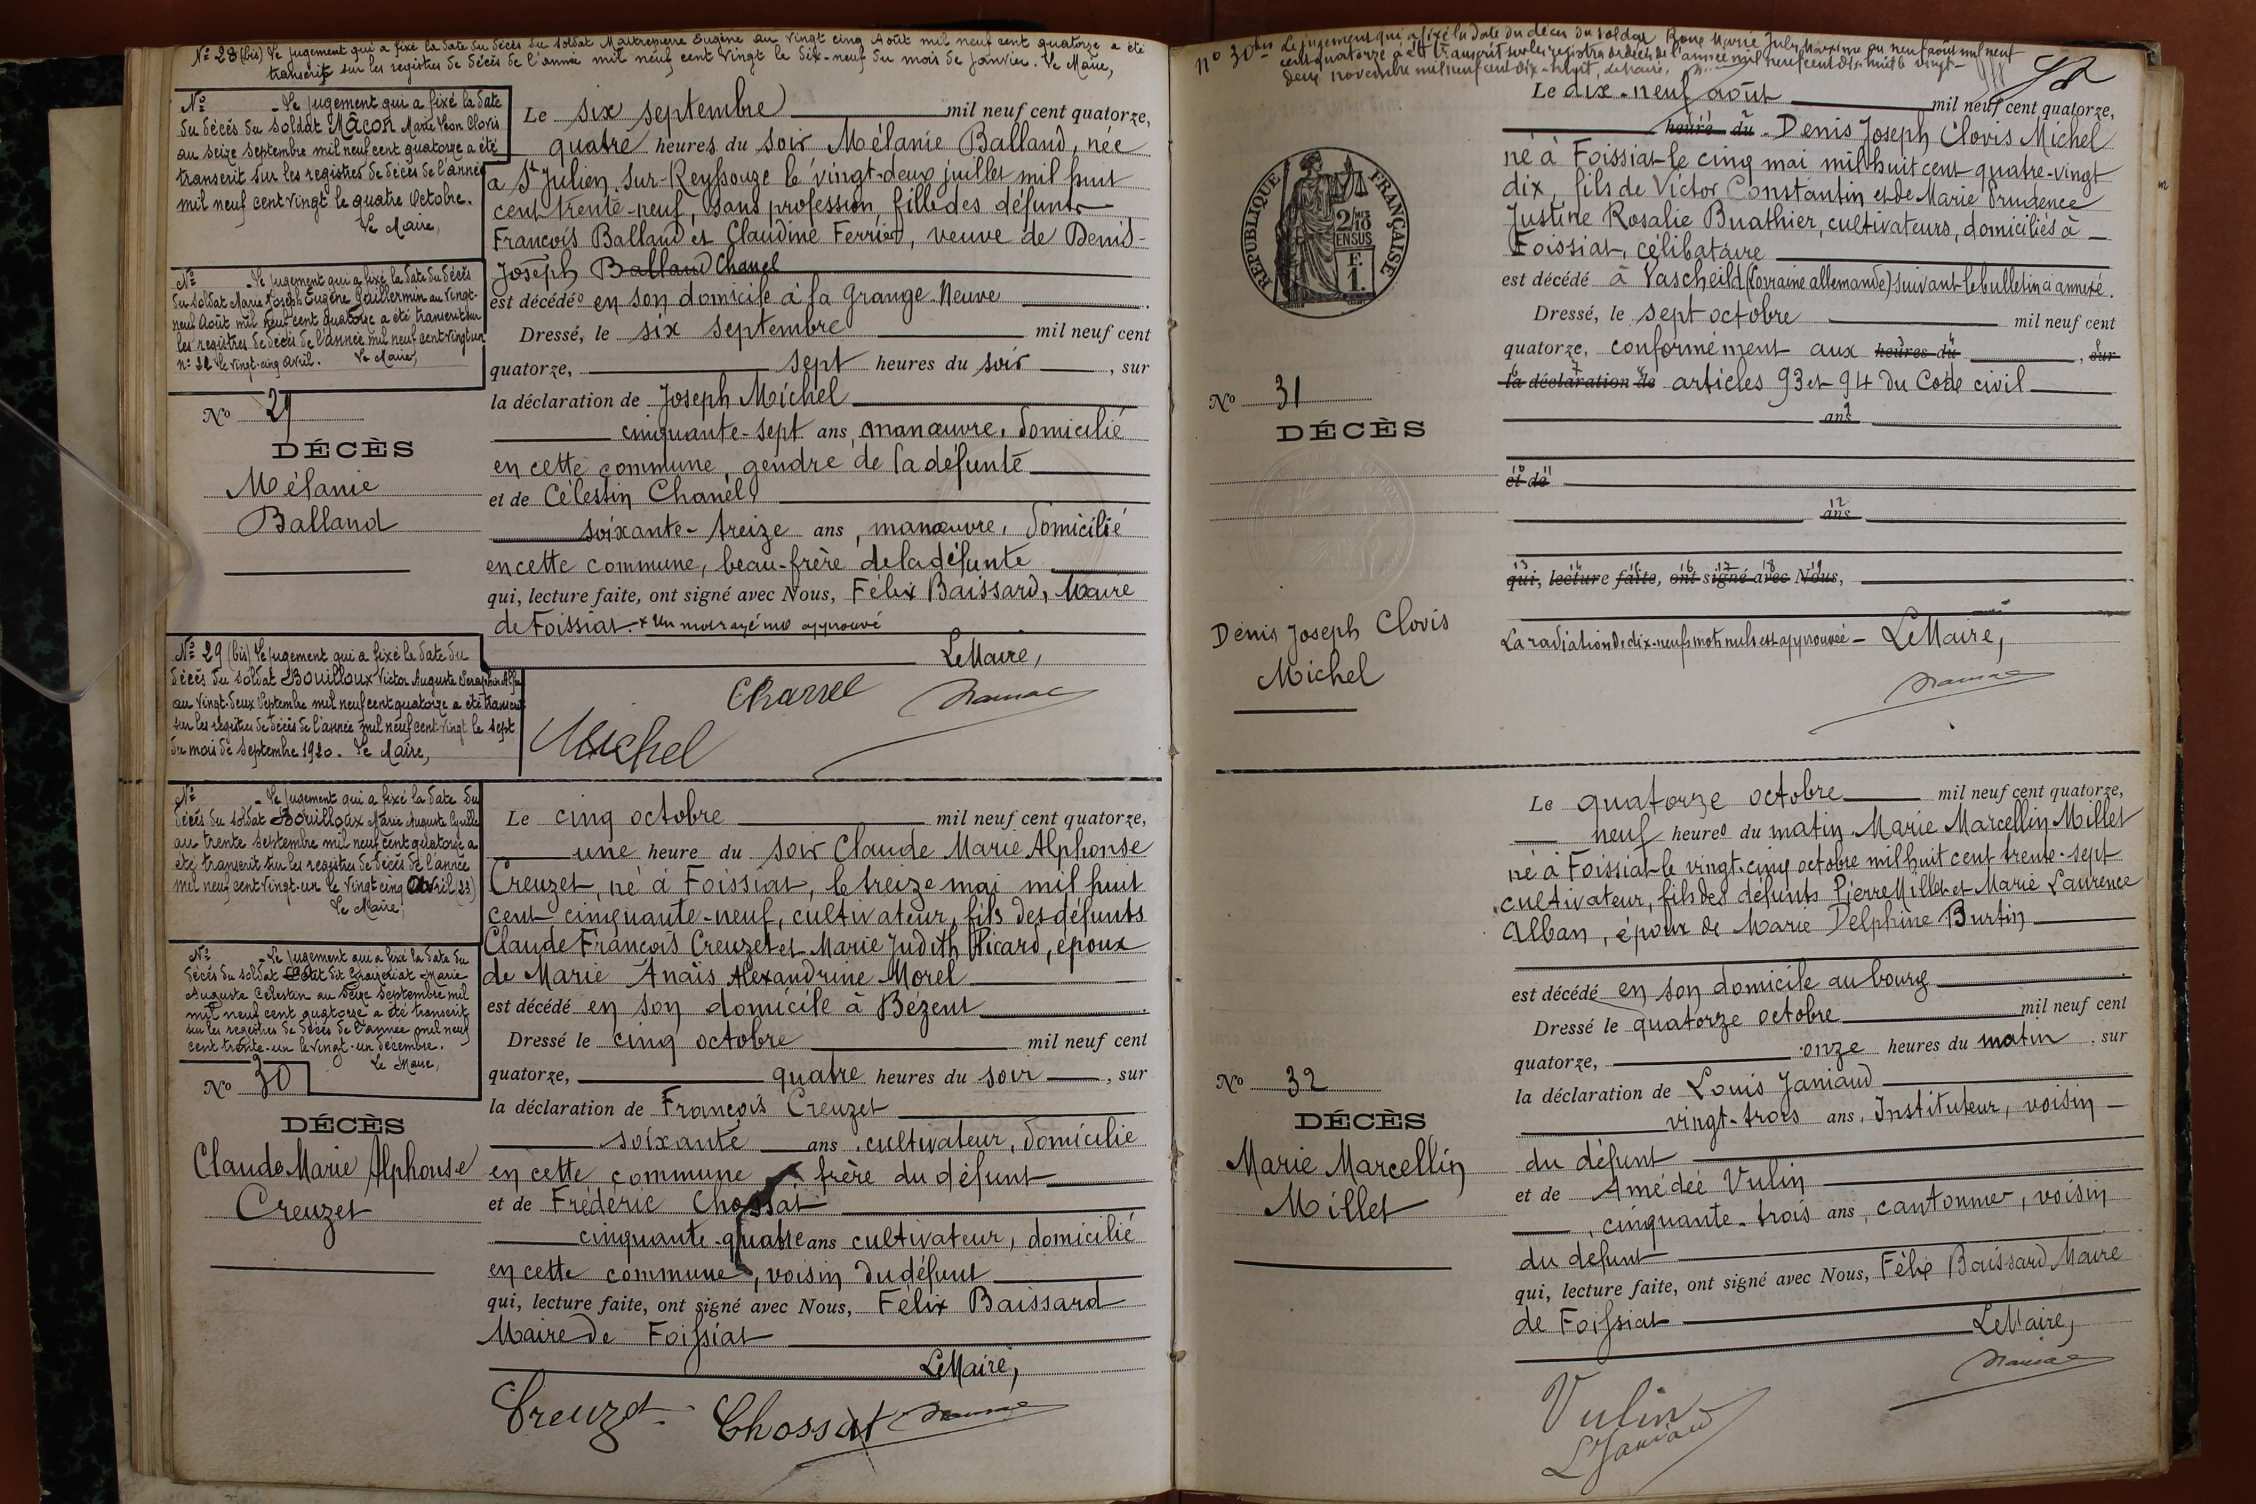 Nº 28 (bis) Le jugement qui a fixé la date du décès du soldat Maitrepierre Eugène au vingt cinq Août mil neuf cent quatorze a été
transcrit sur les registres de décès de l'année mil neuf cent vingt le dix-neuf du mois de Janvier. Le Maire,
Nº - Le jugement qui a fixé la date
du décès du soldat Mâcon Marie Léon Clovis
au seize septembre mil neuf cent quatorze a été
transcrit sur les registres de décès de l'année
mil neuf cent vingt le quatre Octobre.
Le Maire,
Nº - Le jugement qui a fixé la date du décès
du soldat Marie Joseph Eugène Guillermin au vingt-
neuf Août mil neuf cent quatorze a été transcrit sur
les registres de décès de l'année mil neuf cent vingt un
nº 22 le vingt-cinq avril. Le Maire,
Nº 29
DÉCÈS
Mélanie
Balland
Le six septembre mil neuf cent quatorze,
quatre heures du soir Mélanie Balland, née
à St Julien-sur-Reyssouze le vingt-deux juillet mil huit
cent trente-neuf, sans profession, fille des défunts
François Balland et Claudine Ferrier, veuve de Denis-
Joseph Balland Chanel
est décédée en son domicile à la Grange Neuve
Dressé, le six septembre mil neuf cent
quatorze, sept heures du soir, sur
la déclaration de Joseph Michel
cinquante-sept ans, manœuvre, domicilié
en cette commune, gendre de la défunte
et de Célestin Chanel
soixante-treize ans, manœuvre, domicilié
en cette commune, beau-frère de la défunte
qui, lecture faite, ont signé avec Nous, Félix Baissard, Maire
de Foissiat. * Un mot rayé nul approuvé
Le Maire,
Chanel
Michel
Nº 29 (bis) Le jugement qui a fixé la date du
décès du soldat Bouilloux Victor Auguste Séraphin
au vingt-deux Septembre mil neuf cent quatorze a été transcrit
sur les registres de décès de l'année mil neuf cent vingt le sept
du mois de septembre 1920. Le Maire,
Nº - Le jugement qui a fixé la date du
décès du soldat Bouilloux Marie Auguste
au trente septembre mil neuf cent quatorze a
été transcrit sur les registres de décès de l'année
mil neuf cent vingt-un le vingt cinq Avril (23)
Le Maire,
Nº - Le jugement qui a fixé la date du
décès du soldat dit Marie
Auguste Célestin au seize septembre mil
mil neuf cent quatorze a été transcrit
sur les registres de décès de l'année mil neuf
cent trente-un le vingt-un décembre.
Le Maire,
Nº 30
DÉCÈS
Claude Marie Alphonse
Creuzet
Le cinq octobre mil neuf cent quatorze,
une heure du soir Claude Marie Alphonse
Creuzet, né à Foissiat, le treize mai mil huit
cent cinquante-neuf, cultivateur, fils des défunts
Claude François Creuzet et Marie Judith Picard, époux
de Marie Anaïs Alexandrine Morel
est décédé en son domicile à Bézent
Dressé le cinq octobre mil neuf cent
quatorze, quatre heures du soir, sur
la déclaration de François Creuzet
soixante ans, cultivateur, domicilié
en cette commune frère du défunt
et de Frédéric Chossat
cinquante-quatre ans cultivateur, domicilié
en cette commune, voisin du défunt
qui, lecture faite, ont signé avec Nous, Félix Baissard
Maire de Foissiat
Le Maire,
Creuzet Chossat
nº 30 bis Le jugement qui a fixé la date du décès du soldat Roux Marie Jules Maxime au neuf août mil neuf
cent quatorze a été transcrit sur les registres de décès de l'année mil neuf cent dix-huit le vingt-
deux novembre mil neuf cent dix-huit,
RÉPUBLIQUE FRANÇAISE
2/10 EN SUS
F.
1.
Nº 31
DÉCÈS
Denis Joseph Clovis
Michel
Le dix-neuf août mil neuf cent quatorze,
heure du Denis Joseph Clovis Michel
né à Foissiat le cinq mai mil huit cent quatre-vingt
dix, fils de Victor Constantin et de Marie Prudence
Justine Rosalie Buathier, cultivateurs, domiciliés à
Foissiat, célibataire
est décédé à Vascheild (Lorraine allemande) suivant le bulletin ci annexé.
Dressé, le sept octobre mil neuf cent
quatorze, conformément aux heures du, sur
la déclaration de articles 93 et 94 du Code civil
ans
et de
ans
qui, lecture faite, ont signé avec Nous,
La radiation de dix-neuf mots nuls est approuvée - Le Maire,
Nº 32
DÉCÈS
Marie Marcellin
Millet
Le quatorze octobre mil neuf cent quatorze,
neuf heures du matin Marie Marcellin Millet
né à Foissiat le vingt-cinq octobre mil huit cent trente-sept
cultivateur, fils des défunts Pierre Millet et Marie Laurence
Alban, époux de Marie Delphine Burtin
est décédé en son domicile au bourg
Dressé le quatorze octobre mil neuf cent
quatorze, onze heures du matin, sur
la déclaration de Louis Janiaud
vingt-trois ans, Instituteur, voisin
du défunt
et de Amédée Vulin
, cinquante-trois ans, cantonnier, voisin
du défunt
qui, lecture faite, ont signé avec Nous, Félix Baissard Maire
de Foissiat
Le Maire,
Vulin
L Janiaud